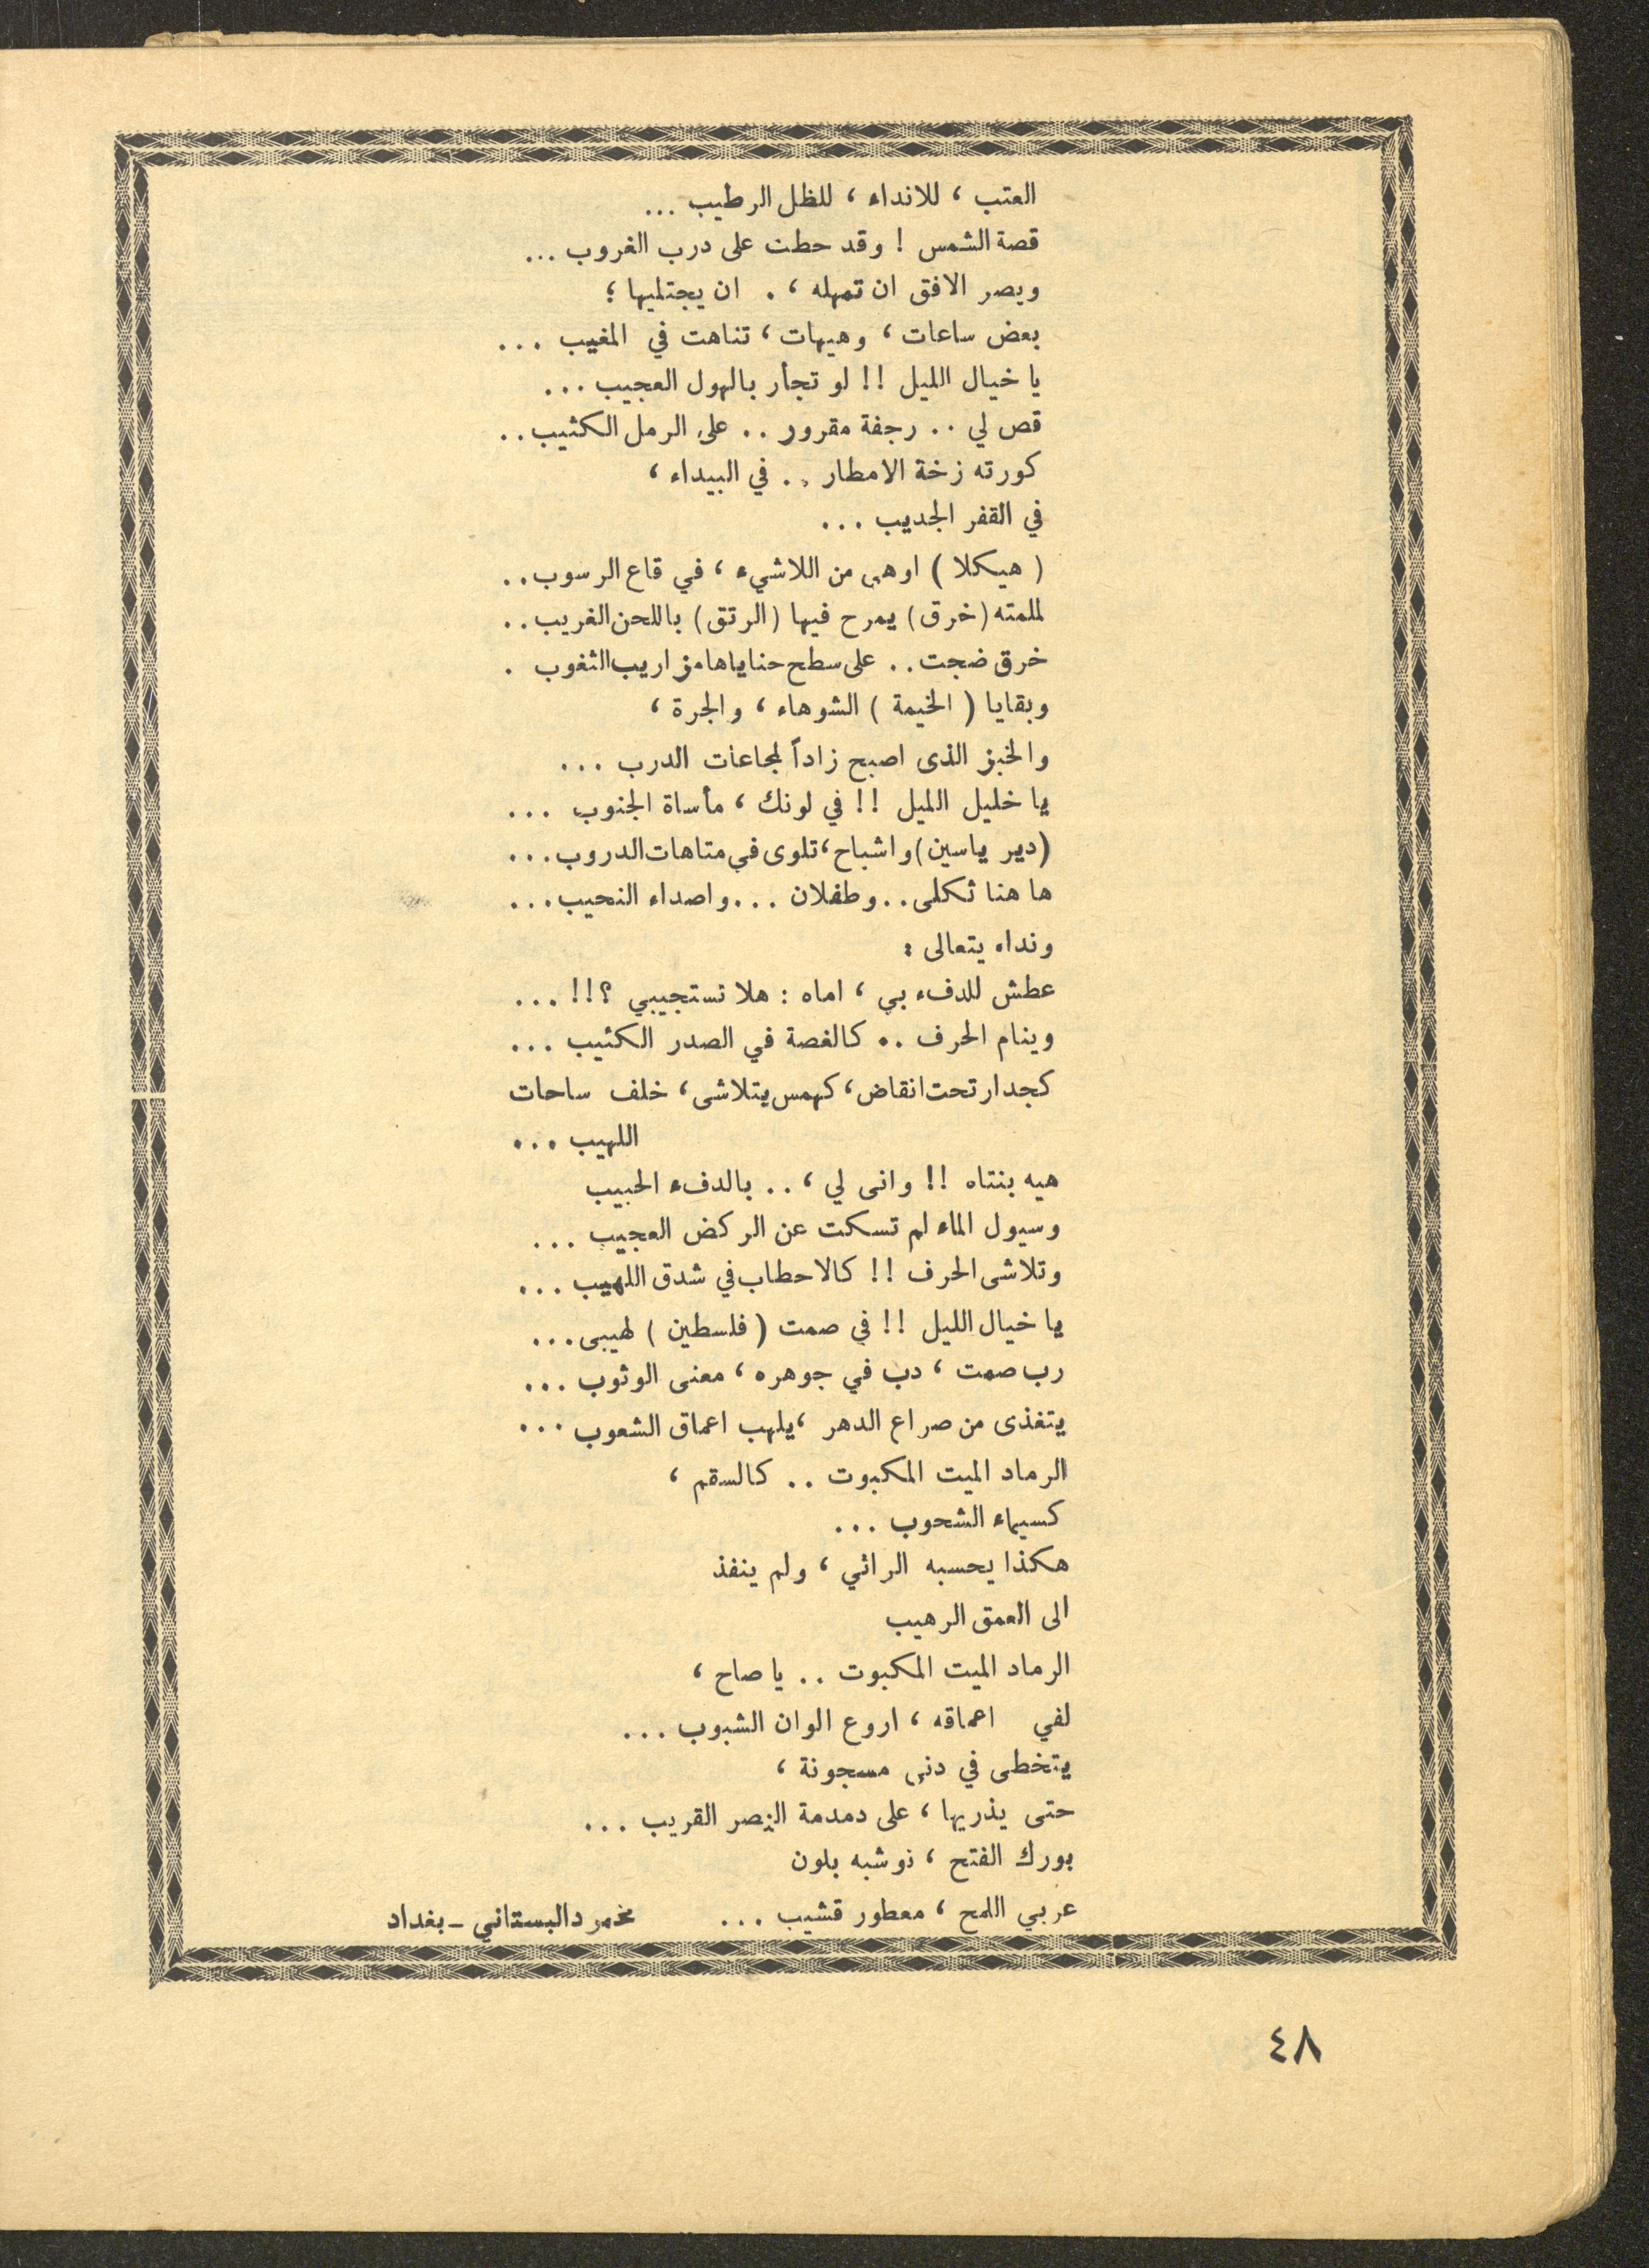 العتب ، للانداء ، للظل الرطيب ...
قصة الشمس ! وقد حطت على درب الغروب ...
ويصر الافق ان تمهله ، . ان يجتليها ؛
بعض ساعات ، وهيهات ، تناهت في المغيب ...
يا خيال الليل !! لو تجأر بالهول العجيب ...
قص لي .. رجفة مقرور .. على الرمل الكثيب ..
كورته زخة الامطار .. في البيداء ،
في القفر الجديب ...
( هيكلا ) اوهى من اللاشيء ، في قاع الرسوب ..
لملمته (خرق) يمرح فيها (الرتق) باللحن الغريب ..
خرق ضجت .. على سطح حناياها مزاريب الثغوب .
وبقايا ( الخيمة ) الشوهاء ، والجرة ،
والخبز الذى اصبح زاداً لمجاعات الدرب ...
يا خليل الليل !! في لونك ، مأساة الجنوب ...
(دير ياسين) واشباح ، تلوى في متاهات الدروب ...
ها هنا ثكلى .. وطفلان ... واصداء النحيب ...
ونداء يتعالى :
عطش للدفء بي ، اماه : هلا تستجيبي ؟!! ...
وينام الحرف .. كالغصة في الصدر الكئيب ...
كجدار تحت انقاض ، كهمس يتلاشى ، خلف ساحات
اللهيب ...
هيه بنتاه !! وانى لي ، .. بالدفء الحبيب
وسيول الماء لم تسكت عن الركض العجيب ...
وتلاشى الحرف !! كالاحطاب في شدق اللهيب ...
يا خيال الليل !! في صمت ( فلسطين ) لهيبى ...
رب صمت ، دب في جوهره ، معنى الوثوب ...
يتغذى من صراع الدهر ، يلهب اعماق الشعوب ...
الرماد الميت المكبوت .. كالسقم ،
كسيماء الشحوب ...
هكذا يحسبه الرائي ، ولم ينفذ
الى العمق الرهيب
الرماد الميت المكبوت .. يا صاح ،
لفي اعماقه ، اروع الوان الشبوب ...
يتخطى في دنى مسجونة ،
حتى يذريها ، على دمدمة النصر القريب ...
بورك الفتح ، نوشبه بلون
عربي اللمح ، معطور قشيب ...
البستاني ـ بغداد
٤٨